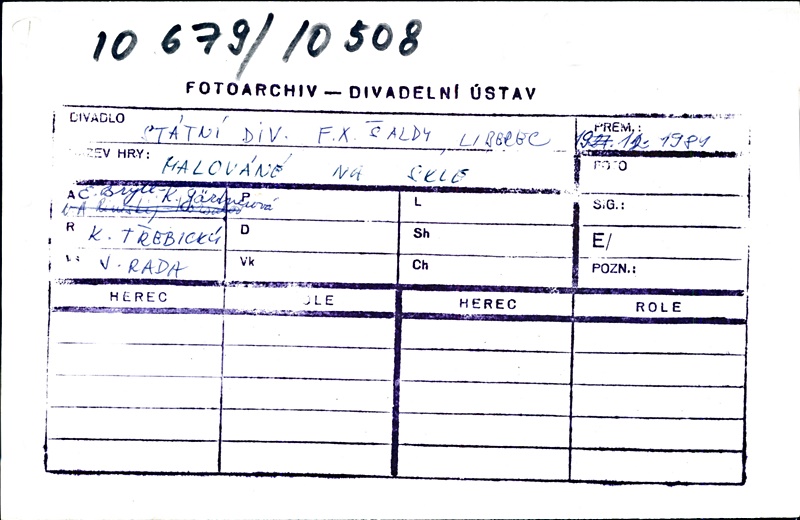 10 679/10 508
FOTOARCHIV — DIVADELNÍ ÚSTAV
DIVADLO STÁTNÍ DIV. F.X. ŠALDY, LIBEREC
PREM.: 12. 1981
ZEV HRY: MALOVÁNÉ NA SKLE
FOTO
A E. Bryll - K. Gärtnerová
P
L
SIG.:
R K. TŘEBICKÝ
D
Sh
E/
V. RADA
Vk
Ch
POZN.:
HEREC OLE HEREC ROLE